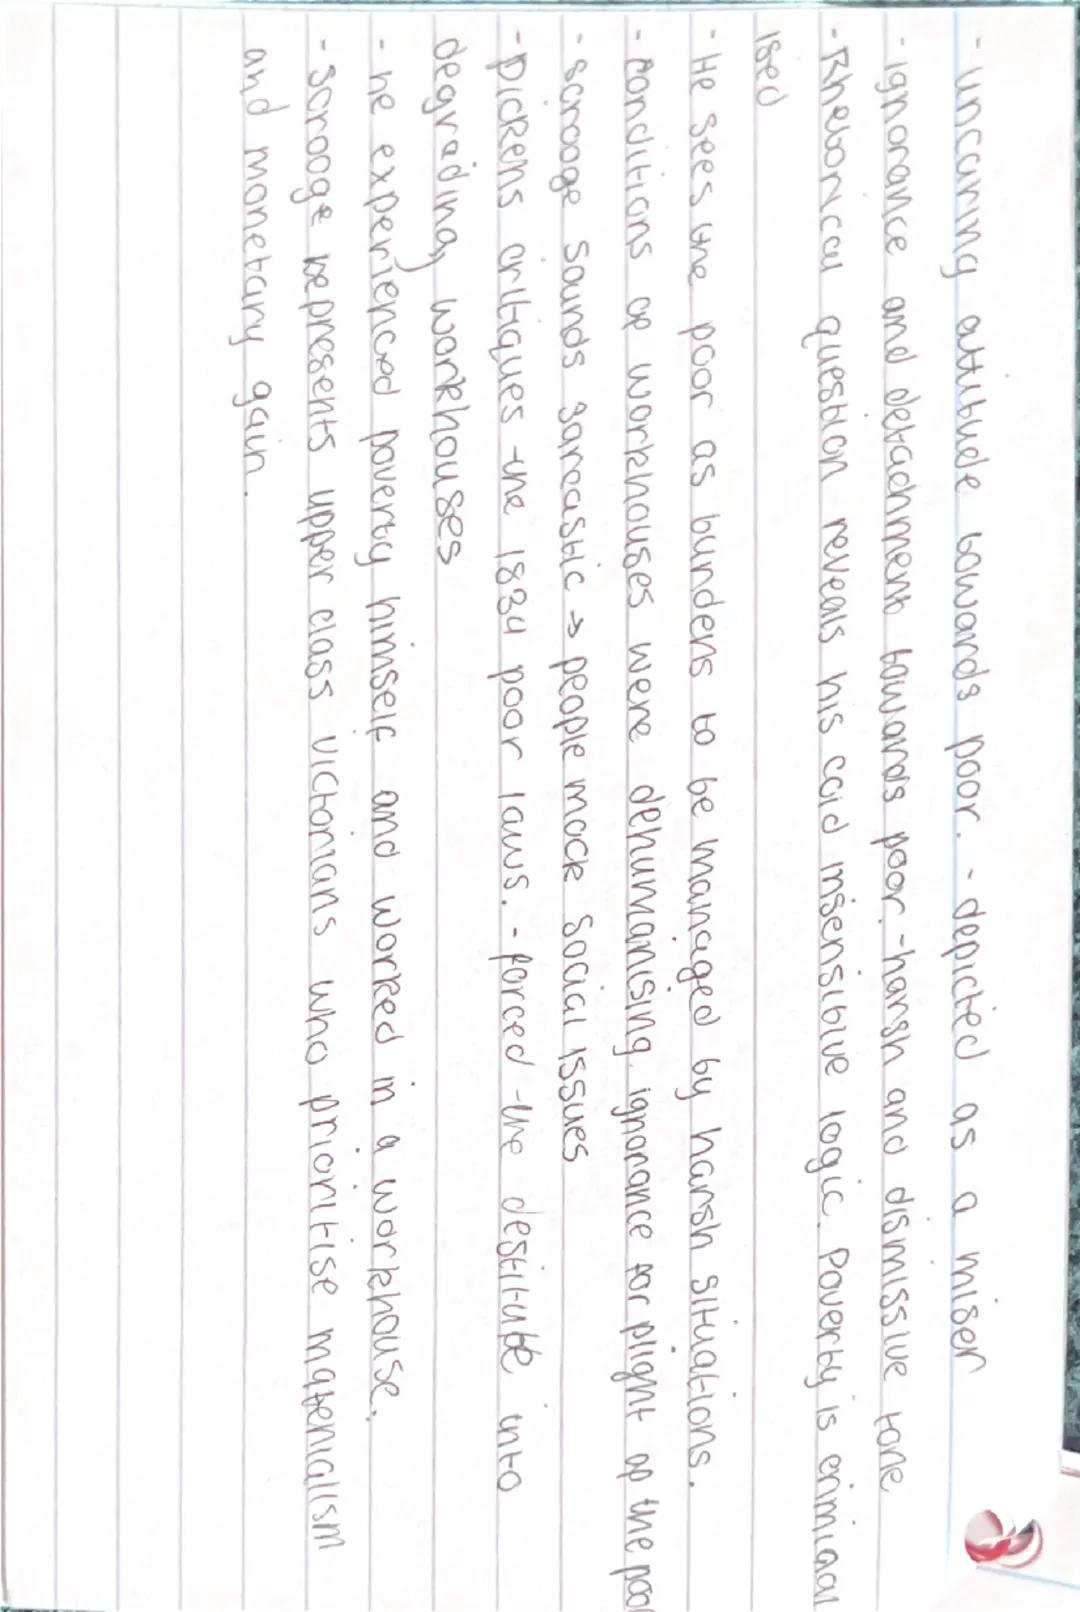 - uncaring attitude towards poor. - depicted as a miser
- ignorance and detachment towards poor - harsh and dismissive tone
- Rhetorical question reveals his cold insensitive logic. Poverty is criminal
ised
- He sees the poor as burdens to be managed by harsh situations.
- Conditions of workhouses were dehumanising. ignorance for plight of the poor
- scrooge sounds sarcastic → people mock social issues
- Dickens critiques the 1834 poor laws. - forced the destitute into
degrading workhouses
- he experienced poverty himself and worked in a workhouse.
- scrooge represents upper class victorians who prioritise materialism
and monetary gain.